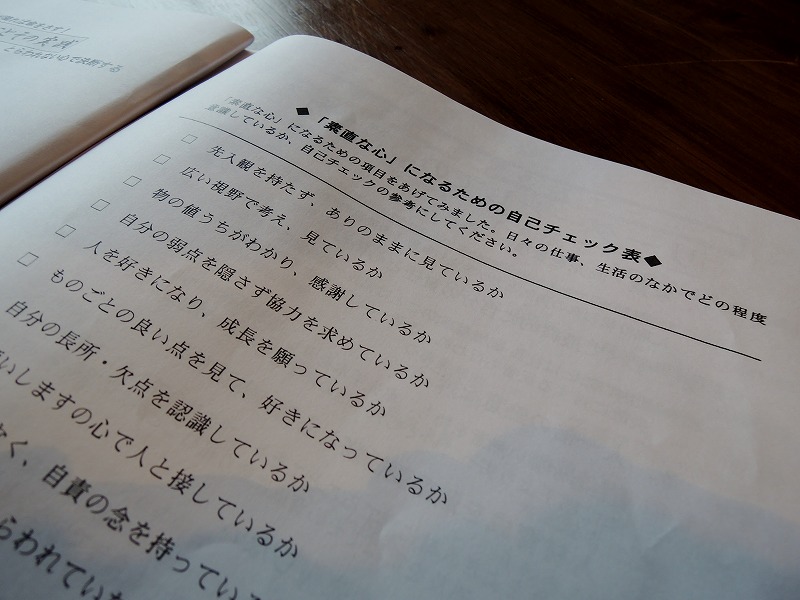 くらわれない心で決断する
◆「素直な心」になるための自己チェック表◆
「素直な心」になるための項目をあげてみました。日々の仕事、生活のなかでどの程度
意識しているか、自己チェックの参考にしてください。
□ 先入観を持たず、ありのままに見ているか
□ 広い視野で考え、見ているか
□ 物の値うちがわかり、感謝しているか
□ 自分の弱点を隠さず協力を求めているか
□ 人を好きになり、成長を願っているか
□ ものごとの良い点を見て、好きになっているか
自分の長所・欠点を認識しているか
いしますの心で人と接しているか
なく、自責の念を持ってい
らわれていな